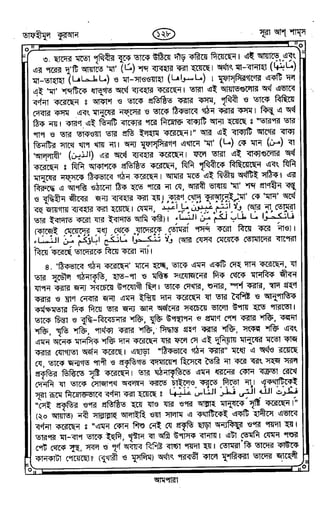 তাফহীমুল কুরআন ১২৮ সূরা আশ্ শামস্
৩. ছাদের মতো পৃথিবীর বুকে তাকে উঠিয়ে দাঁড় করিয়ে দিয়েছেন। এই আয়াতে এবং
এর পরের দু'টি আয়াতে 'মা' (مَا) শব্দ ব্যবহার করা হয়েছে। অর্থাৎ মা-বানাহা (مَابَنٰهَا)
(مَاطَحٰهَا) ও মা-সাওওয়াহা (مَاسَوّٰهَا)। মুফাস্‌সিরগণের একটি দল
এই 'মা' শব্দটিকে ধাতুগত অর্থে ব্যবহার করেছেন। তারা এই আয়াতগুলোর অর্থ এভাবে
বর্ণনা করেছেন : আকাশ ও তাকে প্রতিষ্ঠিত করার কসম, পৃথিবী ও তাকে বিছিয়ে
দেবার কসম এবং মানুষের নফসের ও তাকে ঠিকভাবে গঠন করার কসম। কিন্তু এ অর্থ
ঠিক নয়। কারণ এই তিনটি বাক্যের পরে নিম্নোক্ত বাক্যটি আনা হয়েছে : "তারপর তার
পাপ ও তার তাকওয়া তার প্রতি ইলহাম করেছেন।" আর এই বাক্যটি আগের বাক্য
তিনটির সাথে খাপ খায় না। অন্য মুফাস্‌সিরগণ এখানে 'মা' (مَا) কে মান (مَنْ) বা
'আল্লাযী' (اَلَّذِىْ) এর অর্থে ব্যবহার করেছেন। ফলে তারা এই বাক্যগুলোর অর্থ
করেছেন : যিনি আকাশকে প্রতিষ্ঠিত করেছেন, যিনি পৃথিবীকে বিছিয়েছেন এবং যিনি
মানুষের নফসকে ঠিকভাবে গঠন করেছেন। আমার মতে এই দ্বিতীয় অর্থটিই সঠিক। এর
বিরুদ্ধে এ আপত্তি ওঠানো ঠিক হতে পারে না যে, আরবী ভাষায় 'মা' শব্দ প্রাণহীন বস্তু
ও বুদ্ধিহীন জীবের জন্য ব্যবহার করা হয়। কারণ খোদ কুরআনেই 'মা' কে 'মান' অর্থে
বহু জায়গায় ব্যবহার করা হয়েছে। যেমন, وَلَا اَنْتُمْ عٰبِدُوْنَ مَا اَعْبُدُ (আর না তোমরা
তার ইবাদাত করো যার ইবাদাত আমি করি)। فَانْكِحُوْا مَا طَابَ لَكُمْ مِّنَ النِّسَاءِ
(কাজেই মেয়েদের মধ্য থেকে যাদেরকে তোমরা পসন্দ করো বিয়ে করে নাও।)
وَلَا تَنْكِحُوْا مَا نَكَحَ اٰبَاؤُكُمْ مِّنَ النِّسَاءِ (আর যেসব মেয়েকে তোমাদের বাপেরা
বিয়ে করেছে তাদেরকে বিয়ে করো না)।
৪. 'ঠিকভাবে গঠন করেছেন' মানে হচ্ছে, তাকে এমন একটি দেহ দান করেছেন, যা
তার সুডৌল গঠনাকৃতি, হাত-পা ও মস্তিষ্ক সংযোজনের দিক থেকে মানবিক জীবন
যাপন করার জন্য সবচেয়ে উপযোগী ছিল। তাকে দেখার, শুনার, স্পর্শ করার, স্বাদ গ্রহণ
করার ও ঘ্রাণ নেবার জন্য এমন ইন্দ্রিয় দান করেছেন যা তার বৈশিষ্ট ও আনুপাতিক
কর্মক্ষমতার দিক দিয়ে তার জন্য জ্ঞান অর্জনের সবচেয়ে ভালো উপায় হতে পারতো।
তাকে চিন্তা ও বুদ্ধি-বিবেচনার শক্তি, যুক্তি উপস্থাপন ও প্রমাণ পেশ করার শক্তি, কল্পনা
শক্তি, স্মৃতি শক্তি, পার্থক্য করার শক্তি, সিদ্ধান্ত গ্রহণ করার শক্তি, সংকল্প শক্তি এবং
এমন অনেক মানসিক শক্তি দান করেছেন যার ফলে সে এই দুনিয়ায় মানুষের মতো কাজ
করার যোগ্যতা অর্জন করেছে। এছাড়া "ঠিকভাবে গঠন করার" মধ্যে এ অর্থও রয়েছে
যে, তাকে জন্মগত পাপী ও প্রকৃতিগত বদমায়েশ হিসেবে তৈরি না করে বরং সহজ সরল
প্রকৃতির ভিত্তিতে সৃষ্টি করেছেন। তার গঠনাকৃতিতে এমন ধরনের কোন বক্রতা রেখে
দেননি যা তাকে সোজাপথ অবলম্বন করতে চাইলেও করতে দিতো না। একথাটিকেই
সূরা রূমে নিম্নোক্তভাবে বর্ণনা করা হয়েছে : فِطْرَتَ اللّٰهِ الَّتِىْ فَطَرَ النَّاسَ عَلَيْهَا
"সেই প্রকৃতির ওপর প্রতিষ্ঠিত হয়ে যাও যার ওপর আল্লাহ মানুষকে সৃষ্টি করেছেন।"
(৩০ আয়াত) নবী সাল্লাল্লাহু আলাইহি ওয়া সাল্লাম এ কথাটিকেই একটি হাদীসে এভাবে
বর্ণনা করেছেন : "এমন কোন শিশু নেই যে প্রকৃতি ছাড়া অন্যকিছুর ওপর পয়দা হয়।
তারপর মা-বাপ তাকে ইহুদি, খৃস্টান বা অগ্নি উপাসক বানায়। এটা তেমনি যেমন পশুর
পেট থেকে সুস্থ, সবল ও পূর্ণ অবয়ব বিশিষ্ট বাচ্চা পয়দা হয়। তোমরা কি তাদের কাউকে
কানকাটা পেয়েছো। (বুখারী ও মুসলিম) অর্থাৎ পরবর্তী কালে মুশরিকরা তাদের জাহেলী
আমপারা